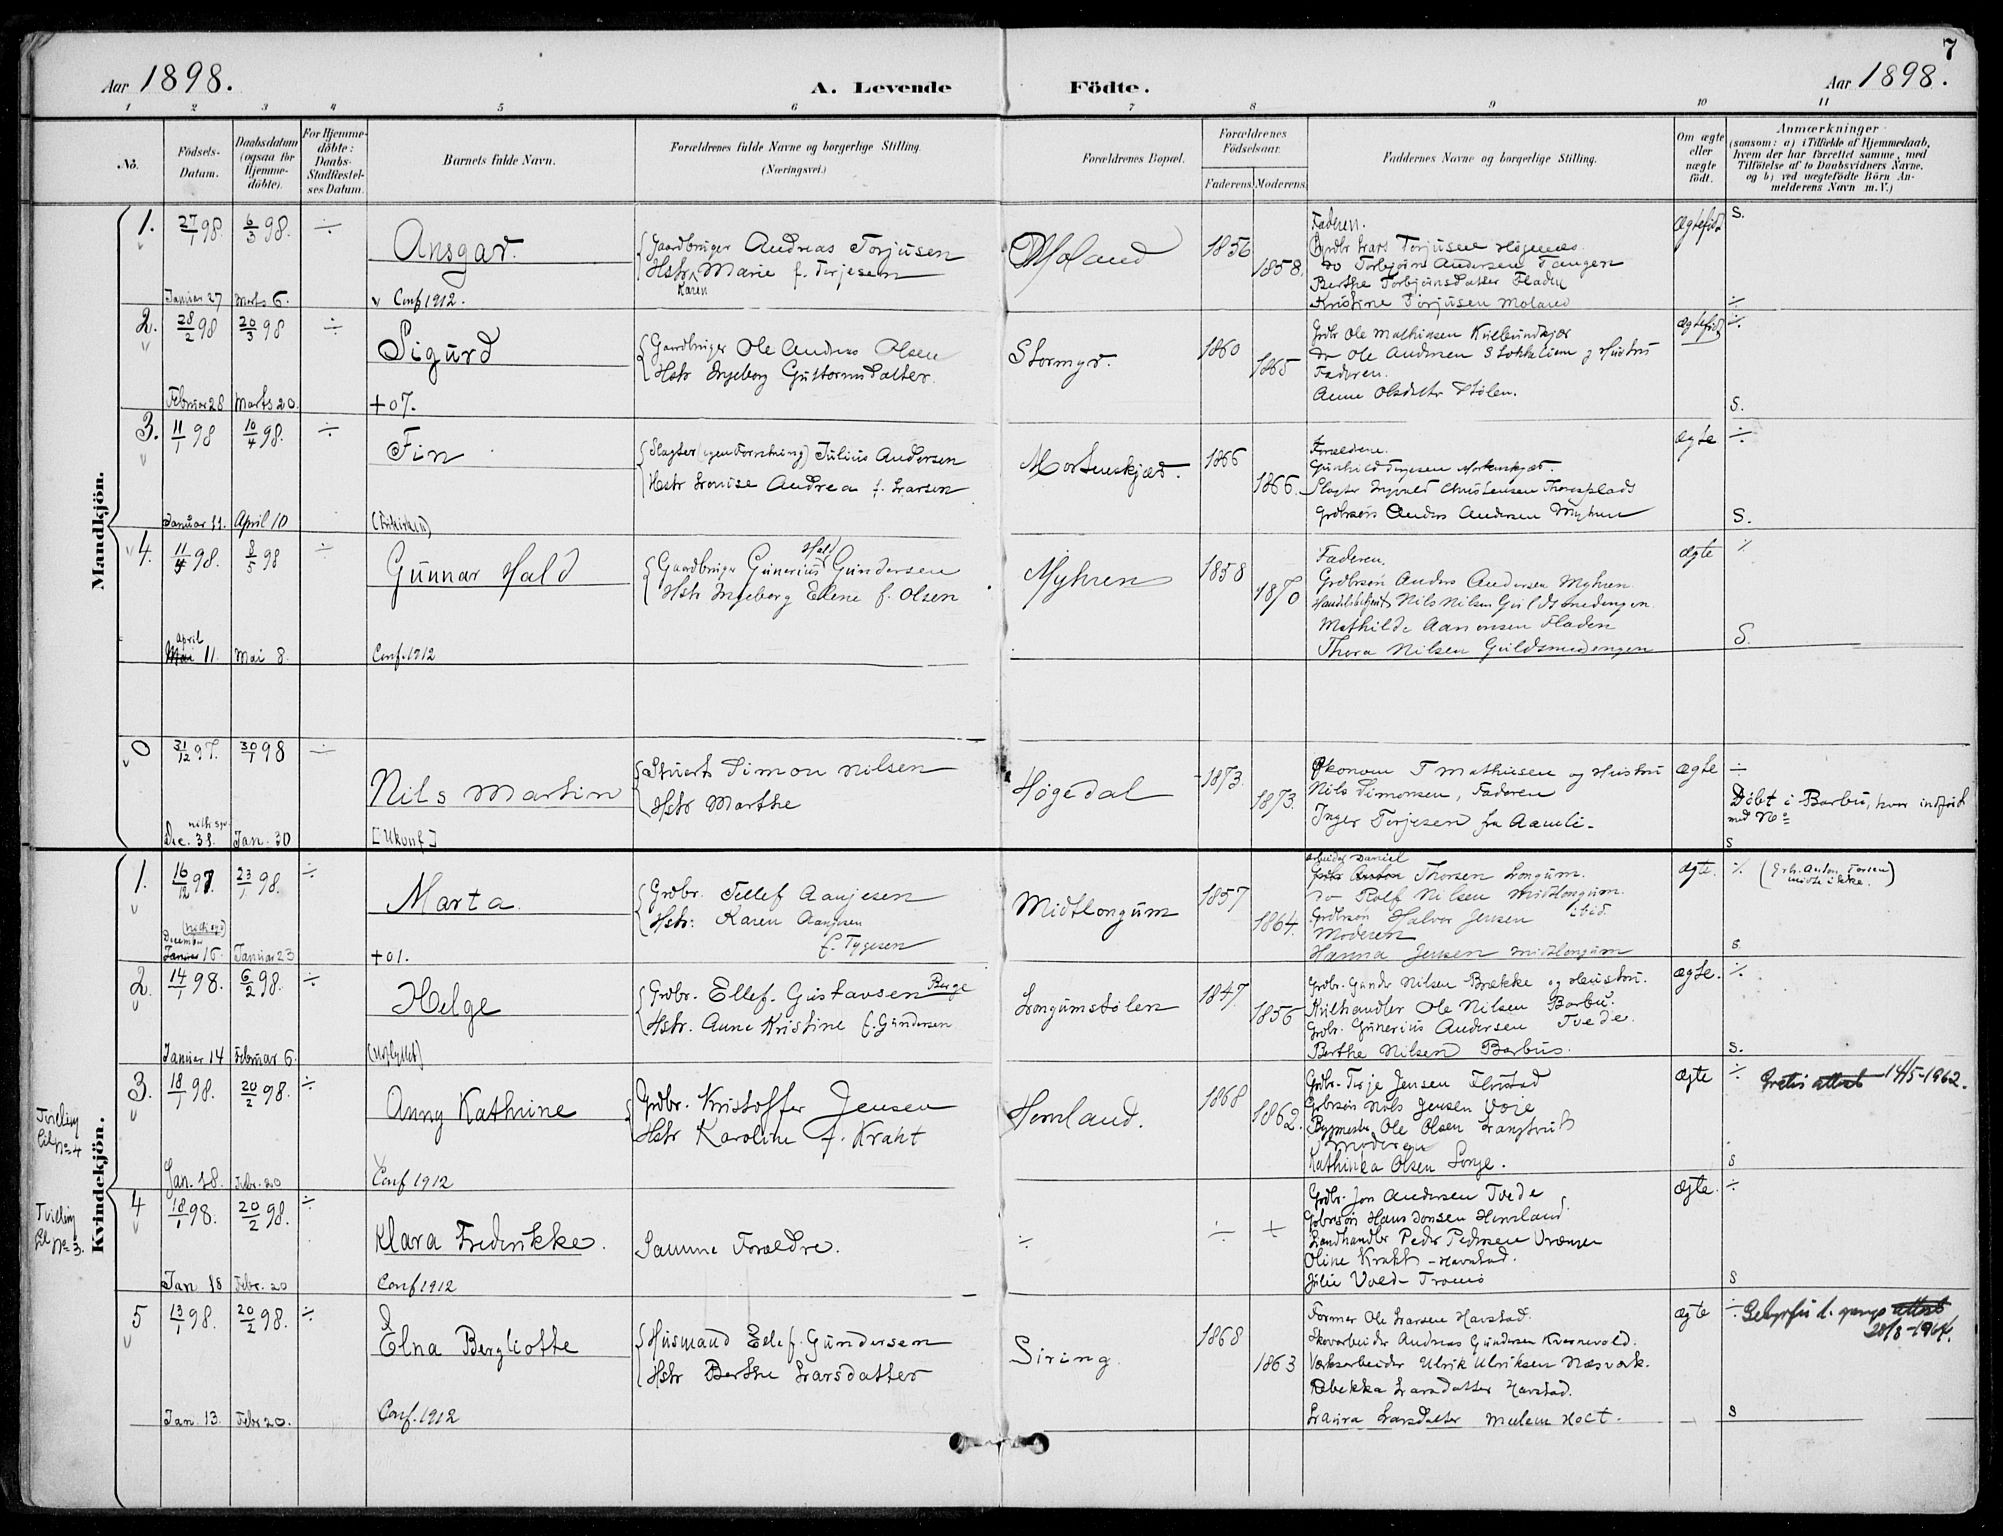 7
Aar 1898.
A. Levende Födte.
Aar 1898.
1 2 3 4 5 6 7 8 9 10 11
No.
Födsels-Datum.
Daabsdatum (ogsaa for Hjemme-döbte).
For Hjemme-döbte: Daabs-Stadfæstel-ses Datum.
Barnets fulde Navn.
Forældrenes fulde Navne og borgerlige Stilling.
(Næringsvei.)
Forældrenes Bopæl.
Forældrenes Födselsaar.
Faderens. Moderens.
Faddernes Navne og borgerlige Stilling.
Om ægte eller uægte födt.
Anmærkninger
(saasom: a) i Tilfælde af Hjemmedaab, hvem der har forrettet samme, med Tilföielse af to Daabsvidners Navne. og b) ved uægtefödte Börn An-melderens Navn m. V.)
Mandkjön.
1. 27/1 98. 6/3 98. ÷
Ansgar.
Gaardbruger Andreas Torjusen
Hstr. Marie f. Terjesen
Karen
Moland
1856
1858.
Faderen.
Grdbr Lars Torjusen Høgenes
do Torbjørn Andersen Tangen
Berthe Torbjørnsdatter Fladen
Kristine Torjusen Moland
Ægtefød
S.
÷
Januar 27 Marts 6. Conf 1912.
2. 28/2 98 20/3 98 ÷
Sigurd
Gaardbruger Ole Andreas Olsen
Hstr Ingeborg Guttormsdatter.
Stormyr.
1860
1865
Grdbr Ole Mathiasen
do Ole Andersen Stokkelien og Hustru
Faderen.
Anne Olsdatter Stølen.
Ægtefødt
÷
S.
Februar 28 Marts 20. +07.
3. 11/1 98 10/4 98. ÷
Fin
Slagter (egen Forretning) Julius Andersen
Hstr Lovise Andrea f. Larsen
Mortenskjær.
1866
1866.
Forældrene.
Gunhild Terjesen Mortenskjær.
Slagter Ingvald Christensen Thorsplads
Grdbrsøn Anders Andersen Myhren
Ægte
÷
S.
Januar 11. April 10
4. 11/4 98. 8/5 98 ÷
Gunnar Hald
Hald
Gaardbruger Gunerius Gundersen
Hstr Ingeborg Elene f. Olsen
Myhren
1858
1870
Faderen.
Grdbrsøn Anders Andersen Myhren.
Handelsbetjent Nils Nilsen Guldsmedengen.
Mathilde Aanonsen Fladen
Thora Nilsen Guldsmedengen
Ægte
S.
april
Mai 11. Mai 8. Conf. 1912
0 31/12 97. 30/1 98 ÷
Nils Martin
Stuert Simon Nilsen
Hstr Marthe
Høgedal
1873.
1873.
Økonom T Mathiesen og Hustru
Nils Simonsen, Faderen
Inger Terjesen fra Aamli.
Ægte
÷
Döbt i Barbu, hvor indført
med No
S
Dec. 31. Jan. 30 [Ukonf]
Kvindekjön.
1. 16/12 97 23/1 98. ÷
Marta.
Grdbr. Tellef Aanjesen
Hstr: Karen Aanjesen
f. Tygesen
Midtlongum
1857
1864.
arbeider Daniel
Thorsen Longum.
do Rolf Nilsen Midtlongum.
Grdbrsøn Halvor Jensen ibid.
Moderen
Hanna Jensen Midtlongum
Ægte.
mødte ikke.
s
December
Januar 16. Januar 23 +01.
2. 14/1 98. 6/2 98. ÷
Helge
Grdbr. Ellef. Gustavsen Berge
Hstr. Anne Kristine f. Gundersen
Longumstølen
1847.
1856
Grdbr. Gunder Nilsen Brække og Hustru.
Kulhandler Ole Nilsen Barbu.
Grdbr. Gunerius Andersen Tvede.
Berthe Nilsen Barbu.
Ægte.
÷
S.
Januar 14 Februar 6. (Udflyttet)
Tvilling til No 4
3. 18/1 98. 20/2 98. ÷
Anny Kathrine
Grdbr. Kristoffer Jensen
Hstr Karoline f. Kraht
Hovland.
1868
1862.
Grdbr. Terje Jensen Flrustad
Grdbrsøn Nils Jensen Voie
Bygmester Ole Olsen Langtvedt
Moderen
Kathinka Olsen Longe.
Ægte
÷
Gratis attest 14/5-1962.
s
Jan. 18. Febr. 20 Conf 1912
Tvilling til No 3.
4 18/1 98. 20/2 98. ÷
Klara Frederikke.
Samme Forældre.
÷ ÷ +
Grdbr. Jon Andersen Tvede
Gdbrsøn Hans Jonsen Hovland
Landhandler Peder Pedersen Vrængen
Oline Kraht - Havstad.
Julie Vold - Tromø
Ægte.
÷
s
Jan 18 Febr. 20 Conf 1912
5 13/1 98. 20/2 98. ÷
Elna Bergliotte
Husmand Ellef Gundersen
Hstr Berthe Larsdatter
Siring.
1868
1863
Former Ole Larsen Havstad.
Skovarbeider Andreas Gundersen Kvernevold.
Værksarbeider Ulrik Ulriksen Næsverk.
Rebekka Larsdatter Havstad.
Laura Larsdatter Mælum Holt.
Ægte
÷
Gebyrfri 1. gangs attest
20/8-1964.
s
Jan. 13. Febr 20. Conf. 1912